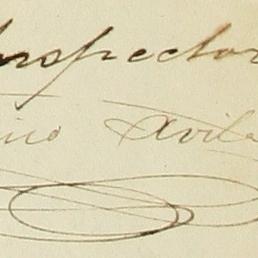 Inspector
Avila